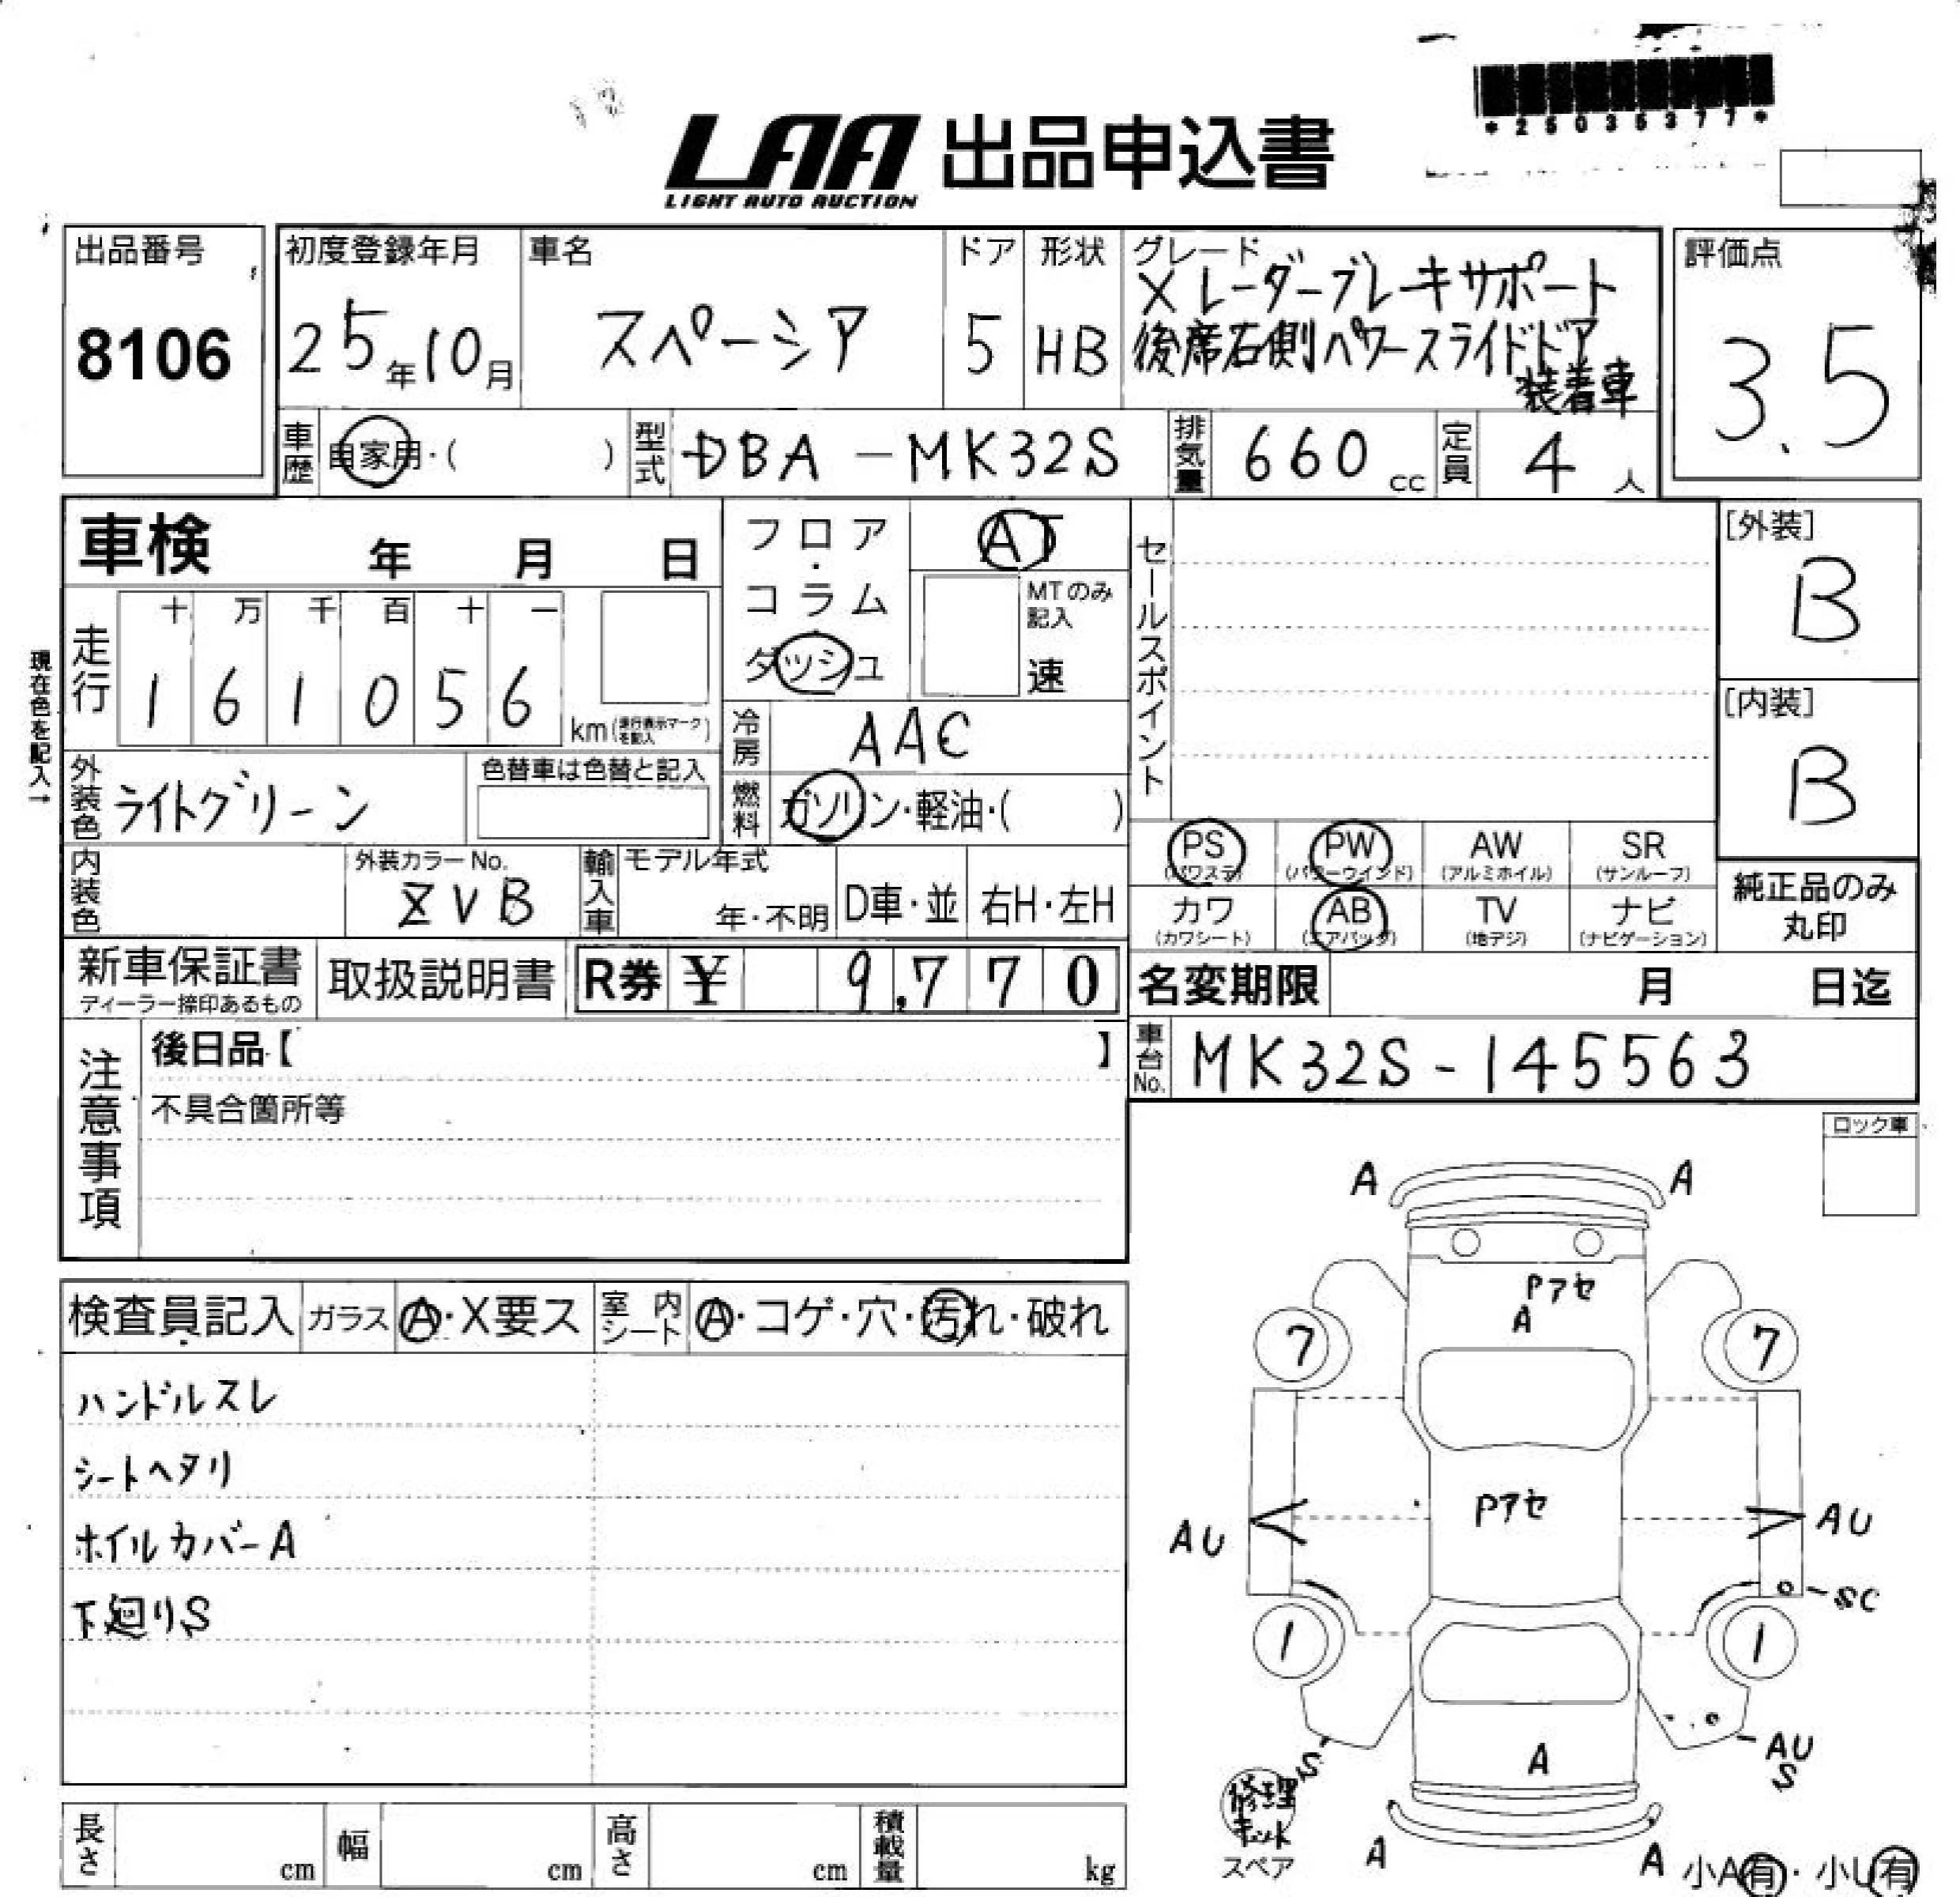 *25035377*
LAA 出品申込書
LIGHT AUTO AUCTION
出品番号
8106
初度登録年月
25年10月
車名
スペーシア
ドア
5
形状
HB
グレード
X レーダーブレーキサポート
後席右側パワースライドドア
装着車
評価点
3.5
車歴
自家用・( )
型式
DBA-MK32S
排気量
660 cc
定員
4 人
車検 年 月 日
フロア・コラム・ダッシュ
AT
MTのみ記入
速
セールスポイント
[外装]
B
[内装]
B
現在色を記入→
走行
十 万 千 百 十 一
1 6 1 0 5 6
km(走行表示マークを記入)
冷房
AAC
外装色
ライトグリーン
色替車は色替と記入
燃料
ガソリン・軽油・( )
内装色
外装カラーNo.
ZVB
輸入車
モデル年式
年・不明
D車・並
右H・左H
PS
(パワステ)
PW
(パワーウインド)
AW
(アルミホイル)
SR
(サンルーフ)
カワ
(カワシート)
AB
(エアバッグ)
TV
(地デジ)
ナビ
(ナビゲーション)
純正品のみ
丸印
新車保証書
ディーラー捺印あるもの
取扱説明書
R券 ¥ 9,770
名変期限 月 日迄
車台No.
MK32S-145563
注意事項
後日品【 】
不具合箇所等
ロック車
検査員記入
ガラス
A・X要ス
室内シート
A・コゲ・穴・汚れ・破れ
ハンドルスレ
シートヘタリ
ホイルカバーA
下廻りS
A A
Pアセ
A
7 7
Pアセ
AU AU
SC
1 1
S
A
AU
S
修理
キット
スペア
A A
小A有・小U有
長さ cm
幅 cm
高さ cm
積載量 kg